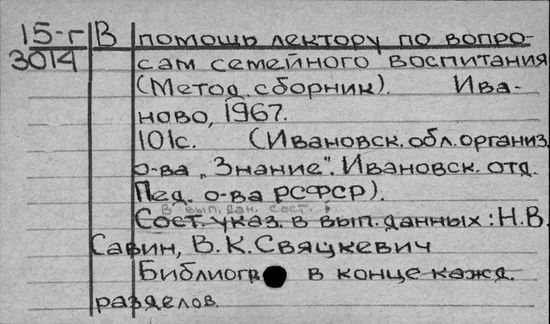 15-г В помощь лектору по вопро-
3014 сам семейного воспитания
(Метод. сборник). Ива-
ново, 1967.
101с. (Ивановск. обл. организ.
о-ва „Знание". Ивановск. отд.
Пед. о-ва РСФСР).
В вып. дан. сост.:
Сост. указ. в вып. данных: Н.В.
Савин, В.К. Свяцкевич
Библиогр в конце кажд.
разделов